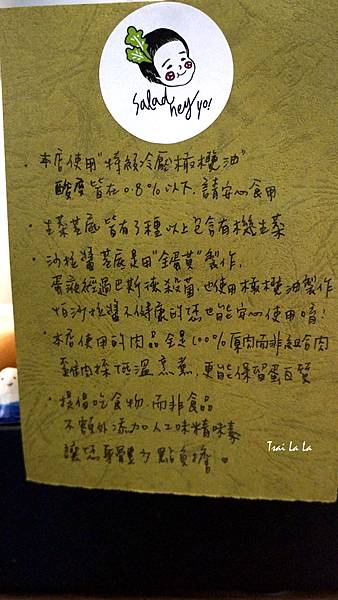 Salad
hey yo!
· 本店使用"特級冷壓橄欖油"
酸度皆在0.8%以下,請安心食用
· 生菜基底皆有3種以上包含有機生菜
· 沙拉醬基底是用"全蛋黃"製作,
蛋液經過巴斯德殺菌,也使用橄欖油製作
怕沙拉醬不健康的您也能安心使用唷!
· 本店使用的肉品全是100%原肉而非組合肉
雞肉採低溫烹煮,更能保留蛋白質
· 提倡吃食物,而非食品
不額外添加人工味精味素
讓您身體少點負擔。
Tsai La La